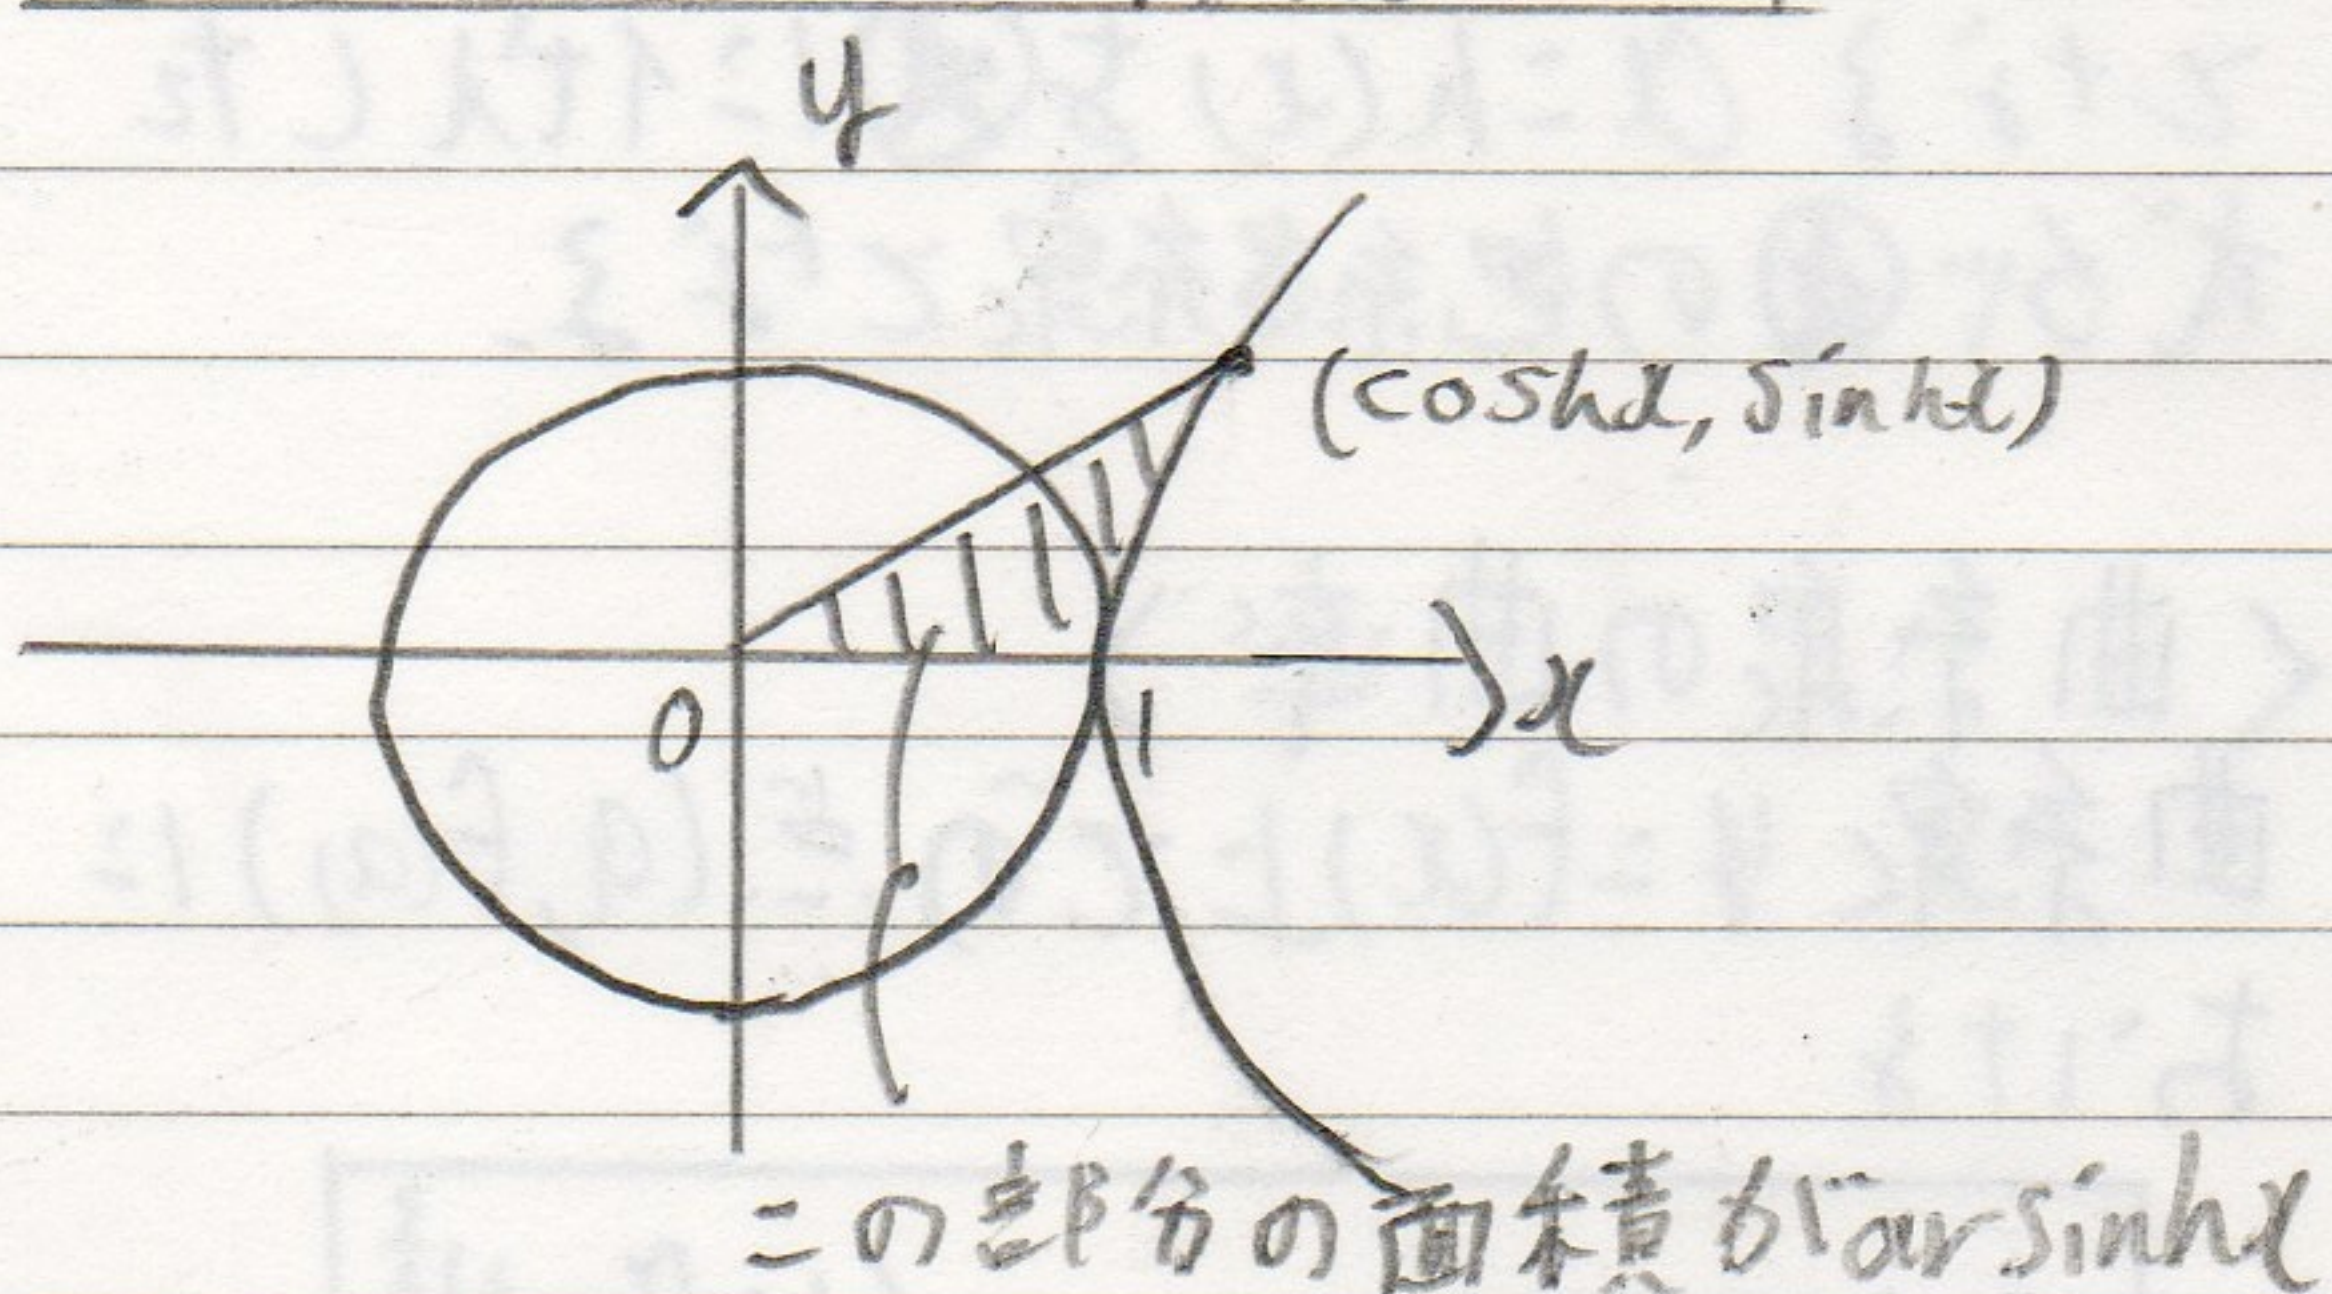 y
(coshx, sinhx)
0
1
x
この部分の面積がarsinhx